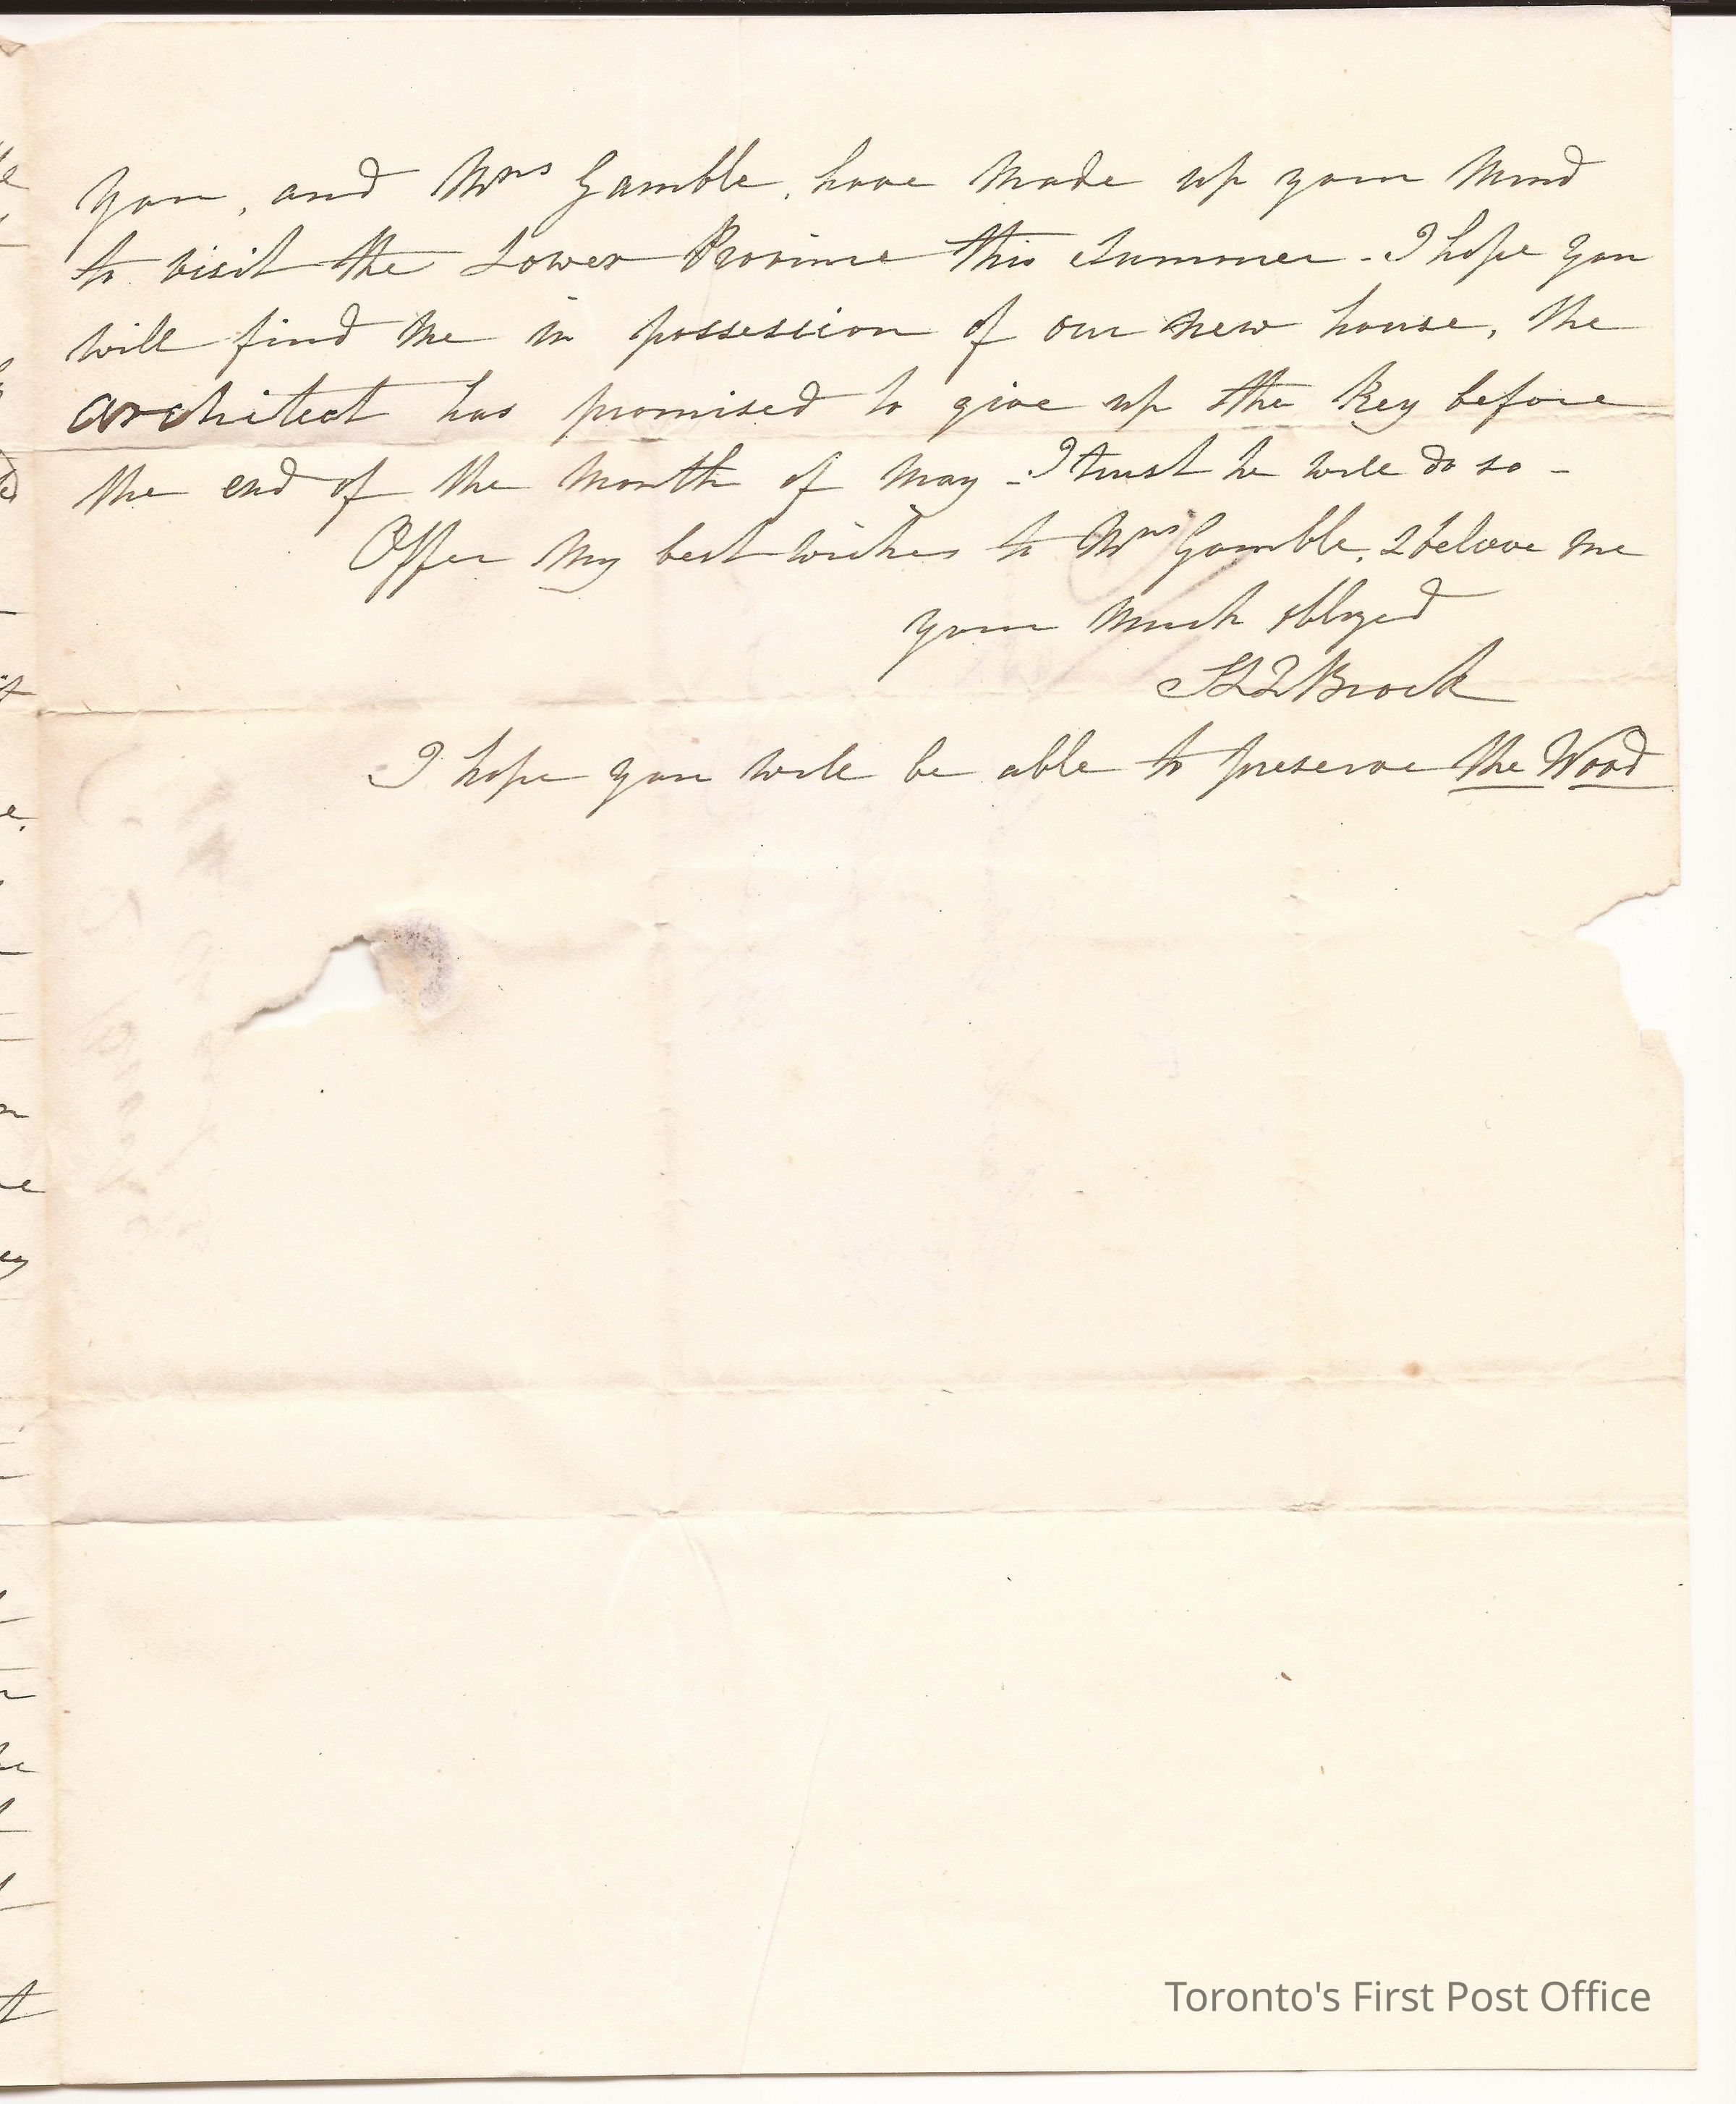 you, and Mrs Gamble, have made up your mind
to visit the Lower Province this Summer - I hope you
will find me in possession of our new house, the
architect has promised to give up the key before
the end of the month of May - I trust he will do so -
Offer my best wishes to Mrs Gamble, & beleive me
your much obliged
Brock
I hope you will be able to preserve the Wood
Toronto's First Post Office